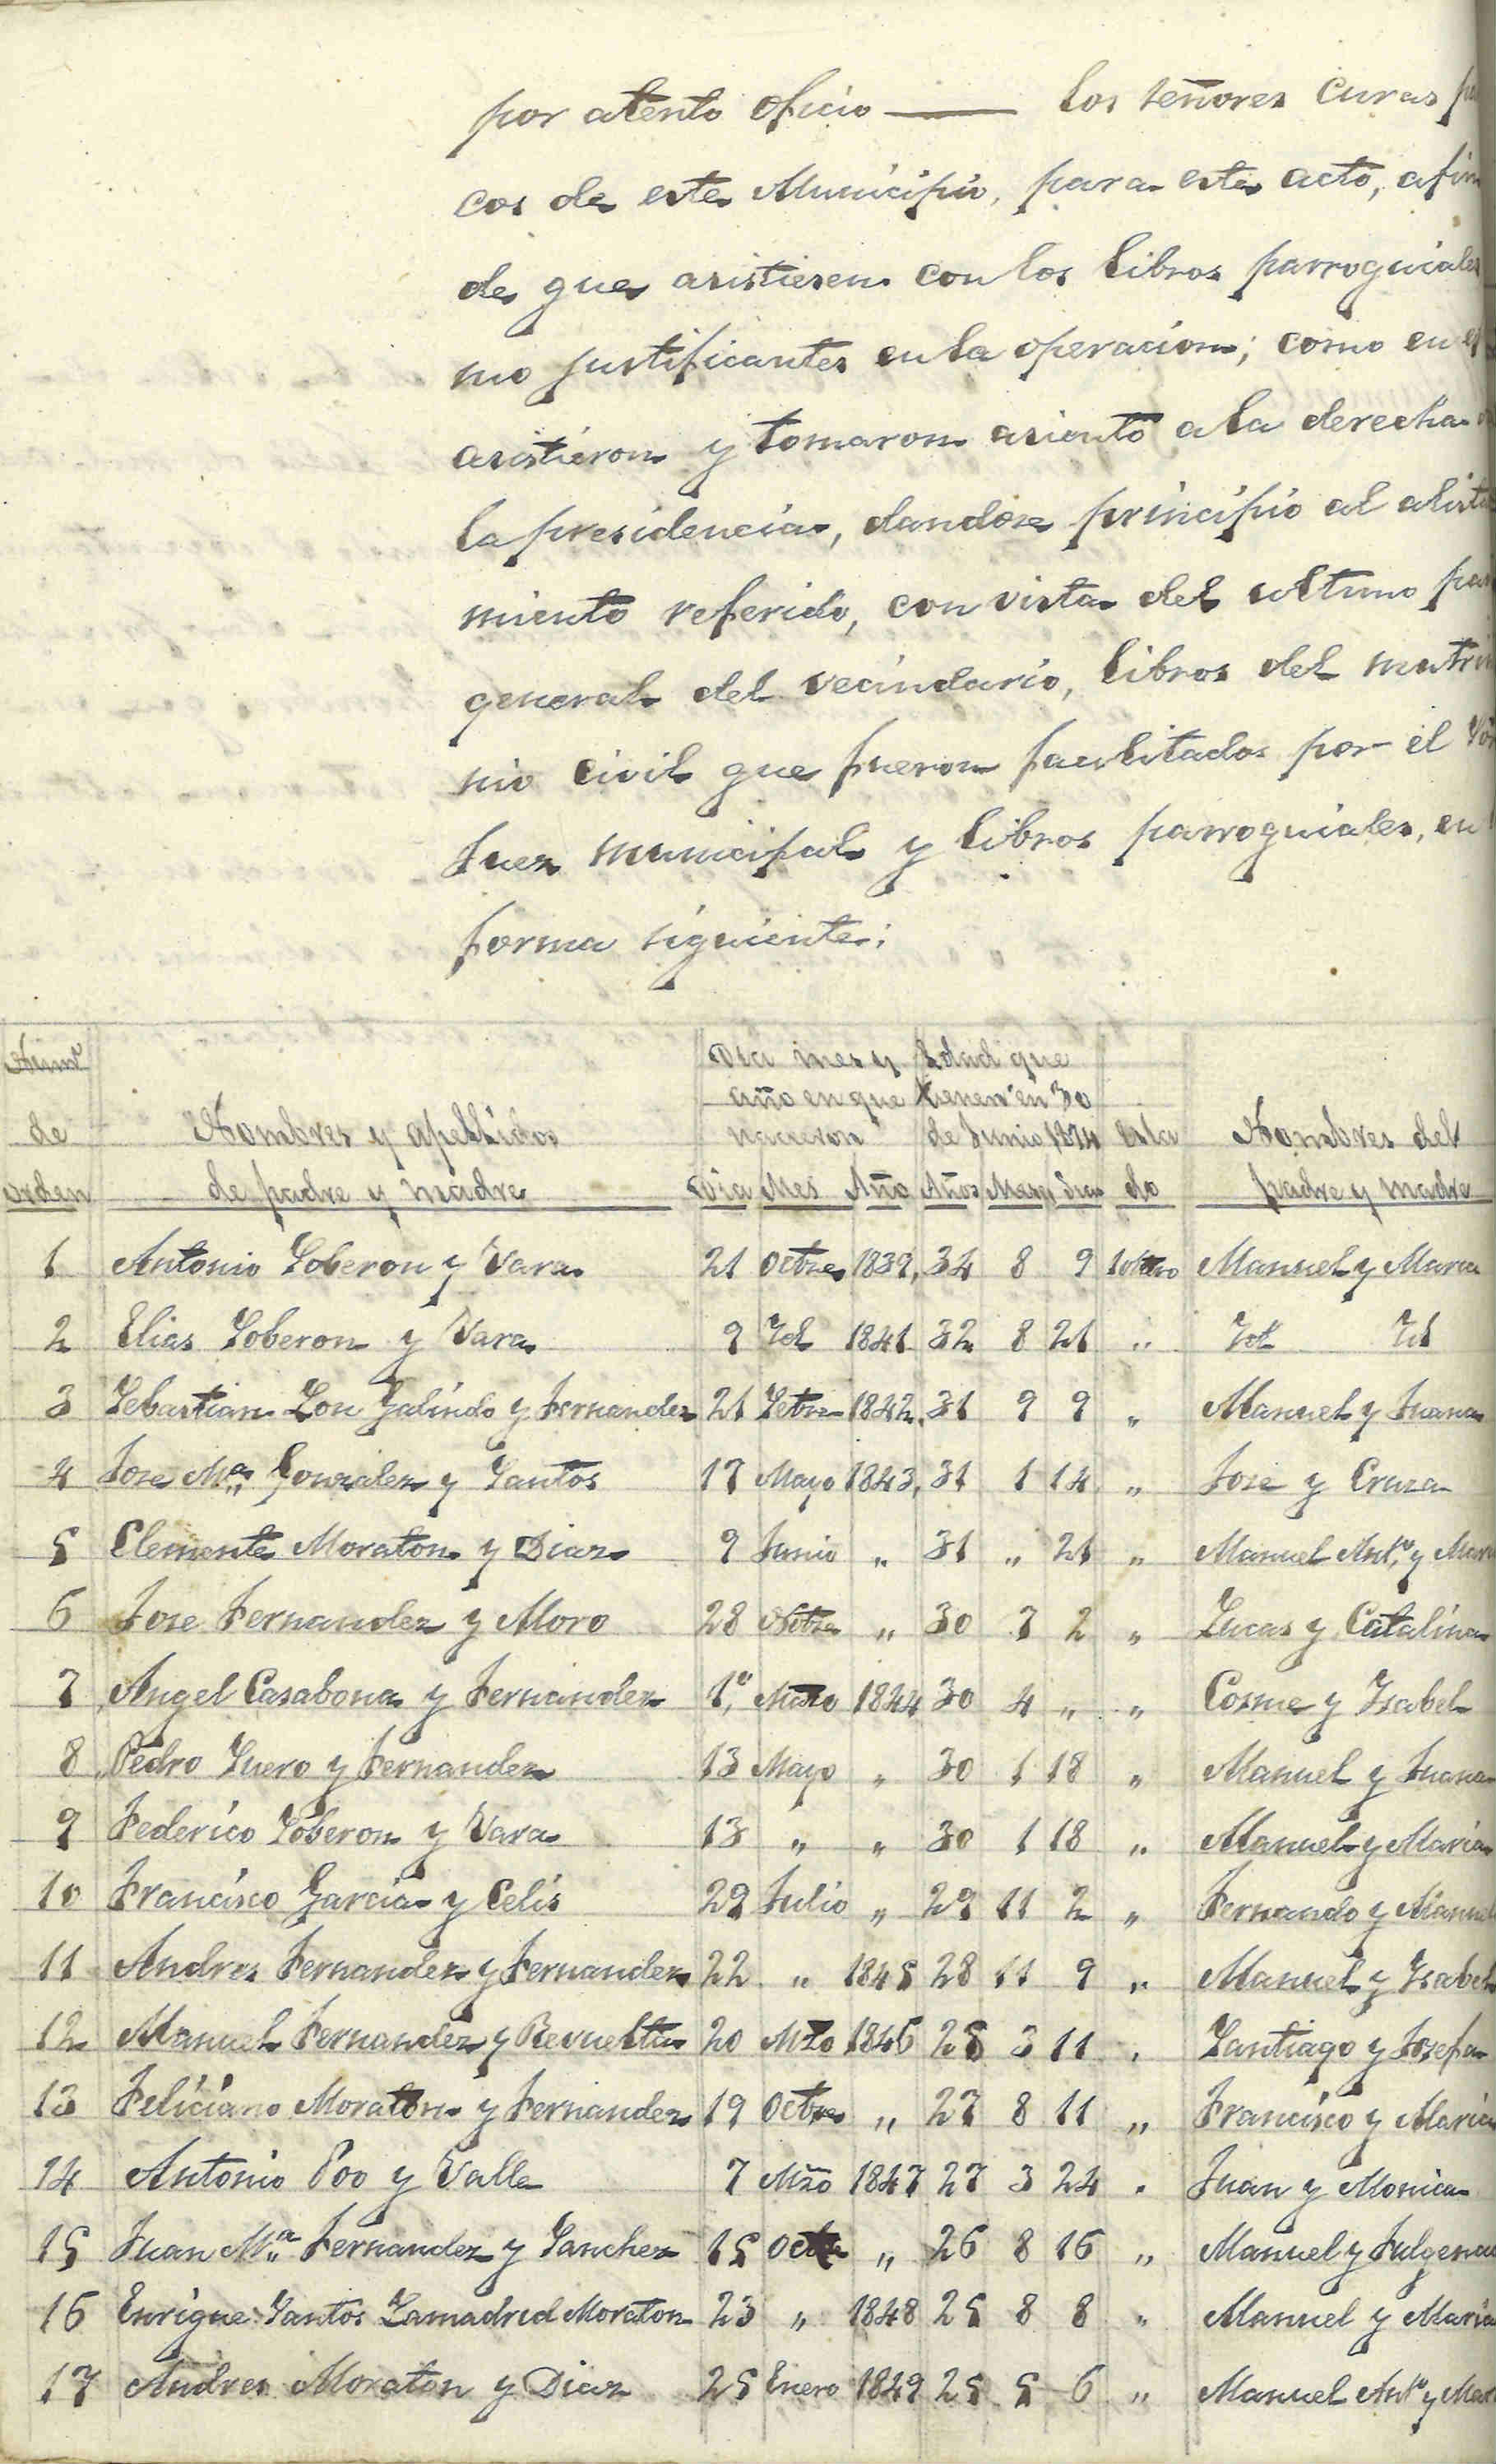 por atento oficio —— los señores Curas
cos de este Municipio, para este acto, afin
de que asistiesen con los libros parroquiales
mo justificantes en la operacion; como en
asistieron y tomaron asiento a la derecha
la presidencia, dandose principio al alista
miento referido, con vista del ultimo
general del vecindario, libros del matri
nio civil que fueron facilitados por el Sor
Juez municipal y libros parroquiales, en
forma siguiente:
Numº de orden | Nombres y apellidos de padre y madre | Dia mes y año en que nacieron | Edad que tienen en 30 de Junio 1874 | Esta do | Nombres del padre y madre
Dia Mes Año Años Meses Dias
1 Antonio Soberon y Vara 21 Octre 1839, 34 8 9 Soltero Manuel y Maria
2 Elias Soberon y Vara 9 Id 1841 32 8 21 " Id Id
3 Sebastian Lon Galindo y Fernandez 21 Setre 1842, 31 9 9 " Manuel y Juana
4 Jose Mª Gonzalez y Santos 17 Mayo 1843, 31 1 14 " Jose y Cruza
5 Clemente Moraton y Diaz 9 Junio " 31 " 21 " Manuel Antº y Mar
6 Jose Fernandez y Moro 28 Nbre " 30 7 2 " Lucas y Catalina
7 Angel Casabona y Fernandez 1º Marzo 1844 30 4 " " Cosme y Isabel
8 Pedro Suero y Fernandez 13 Mayo " 30 1 18 " Manuel y Juana
9 Federico Soberon y Vara 13 " " 30 1 18 " Manuel y Maria
10 Francisco Garcia y Celis 29 Julio " 29 11 2 " Fernando y Manuel
11 Andres Fernandez y Fernandez 22 " 1845 28 11 9 " Manuel y Isabel
12 Manuel Fernandez y Revuelta 20 Mzo 1846 28 3 11 " Santiago y Josefa
13 Feliciano Moraton y Fernandez 19 Octre " 27 8 11 " Francisco y Maria
14 Antonio Poo y Valle 7 Mzo 1847 27 3 24 " Juan y Monica
15 Juan Mª Fernandez y Sanchez 15 Octre " 26 8 16 " Manuel y Fulgencia
16 Enrique Santos Lamadrid Moraton 23 " 1848 25 8 8 " Manuel y Maria
17 Andres Moraton y Diaz 25 Enero 1849 25 5 6 " Manuel Antº y Mar